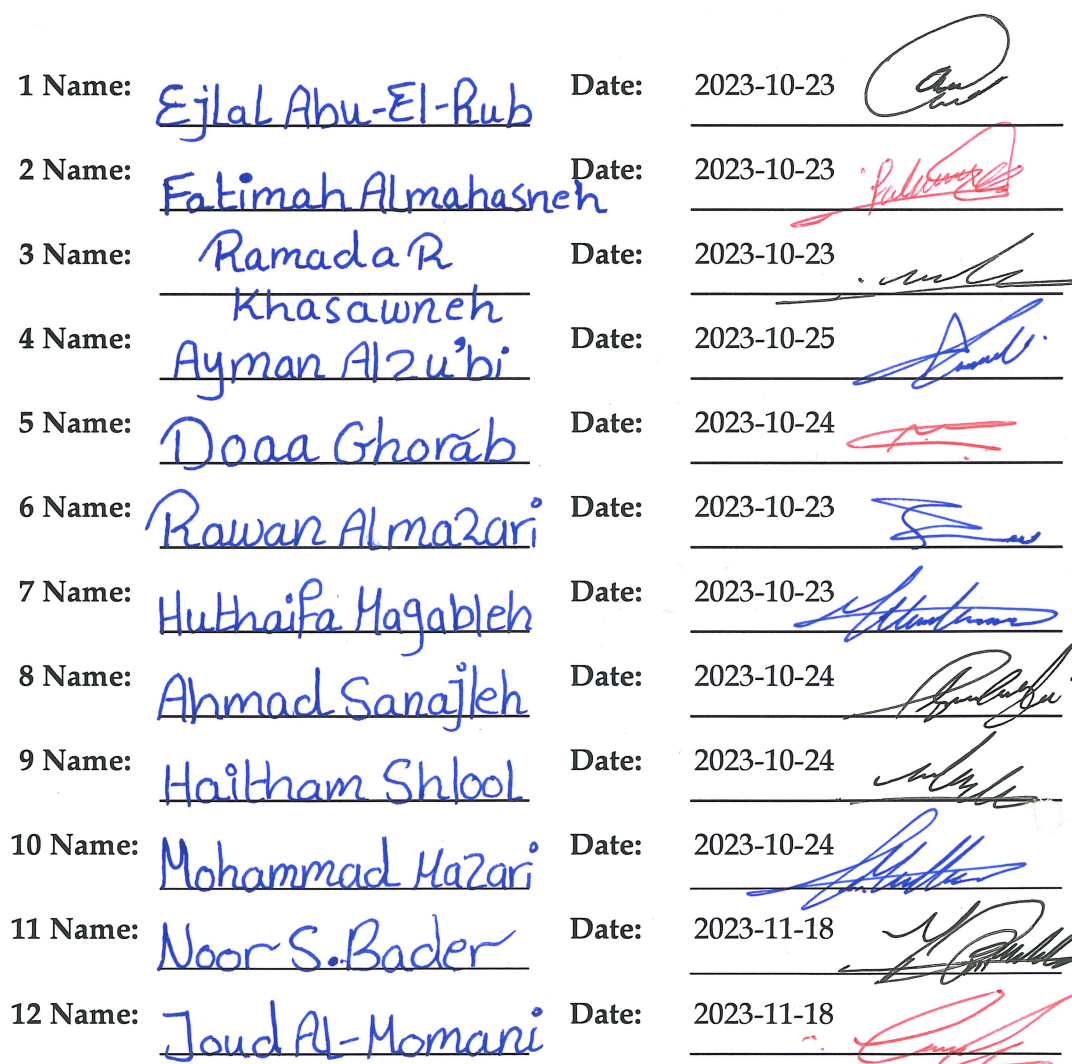 1 Name: Ejlal Abu-El-Rub Date: 2023-10-23
2 Name: Fatimah Almahasneh Date: 2023-10-23
3 Name: Ramada R Date: 2023-10-23
Khasawneh
4 Name: Ayman Alzu'bi Date: 2023-10-25
5 Name: Doaa Ghorab Date: 2023-10-24
6 Name: Rawan Almazari Date: 2023-10-23
7 Name: Huthaifa Magableh Date: 2023-10-23
8 Name: Ahmad Sanajleh Date: 2023-10-24
9 Name: Haitham Shlool Date: 2023-10-24
10 Name: Mohammad Mazari Date: 2023-10-24
11 Name: Noor S. Bader Date: 2023-11-18
12 Name: Joud Al-Momani Date: 2023-11-18